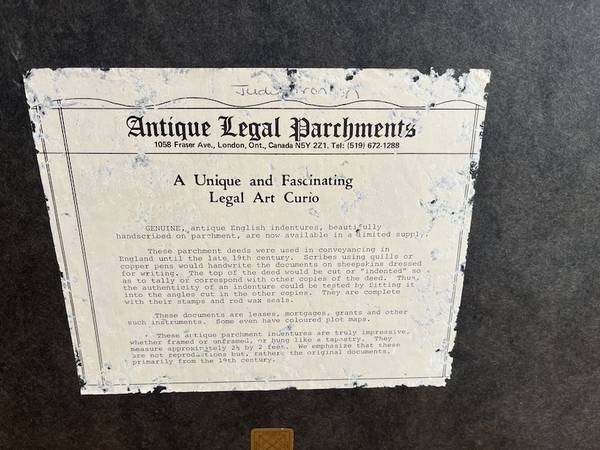 Antique Legal Parchments
1058 Fraser Ave., London, Ont., Canada N5Y 2Z1. Tel: (519) 672-1288
A Unique and Fascinating
Legal Art Curio
GENUINE, antique English indentures, beautifully
handscribed on parchment, are now available in a limited supply.
These parchment deeds were used in conveyancing in
England until the late 19th century. Scribes using quills or
copper pens would handwrite the documents on sheepskins dressed
for writing. The top of the deed would be cut or "indented" so
as to tally or correspond with other copies of the deed. Thus,
the authenticity of an indenture could be tested by fitting it
into the angles cut in the other copies. They are complete
with their stamps and red wax seals.
These documents are leases, mortgages, grants and other
such instruments. Some even have coloured plot maps.
These antique parchment indentures are truly impressive,
whether framed or unframed, or hung like a tapestry. They
measure approximately 2½ by 2 feet. We emphasize that these
are not reproductions but, rather, the original documents,
primarily from the 19th century.